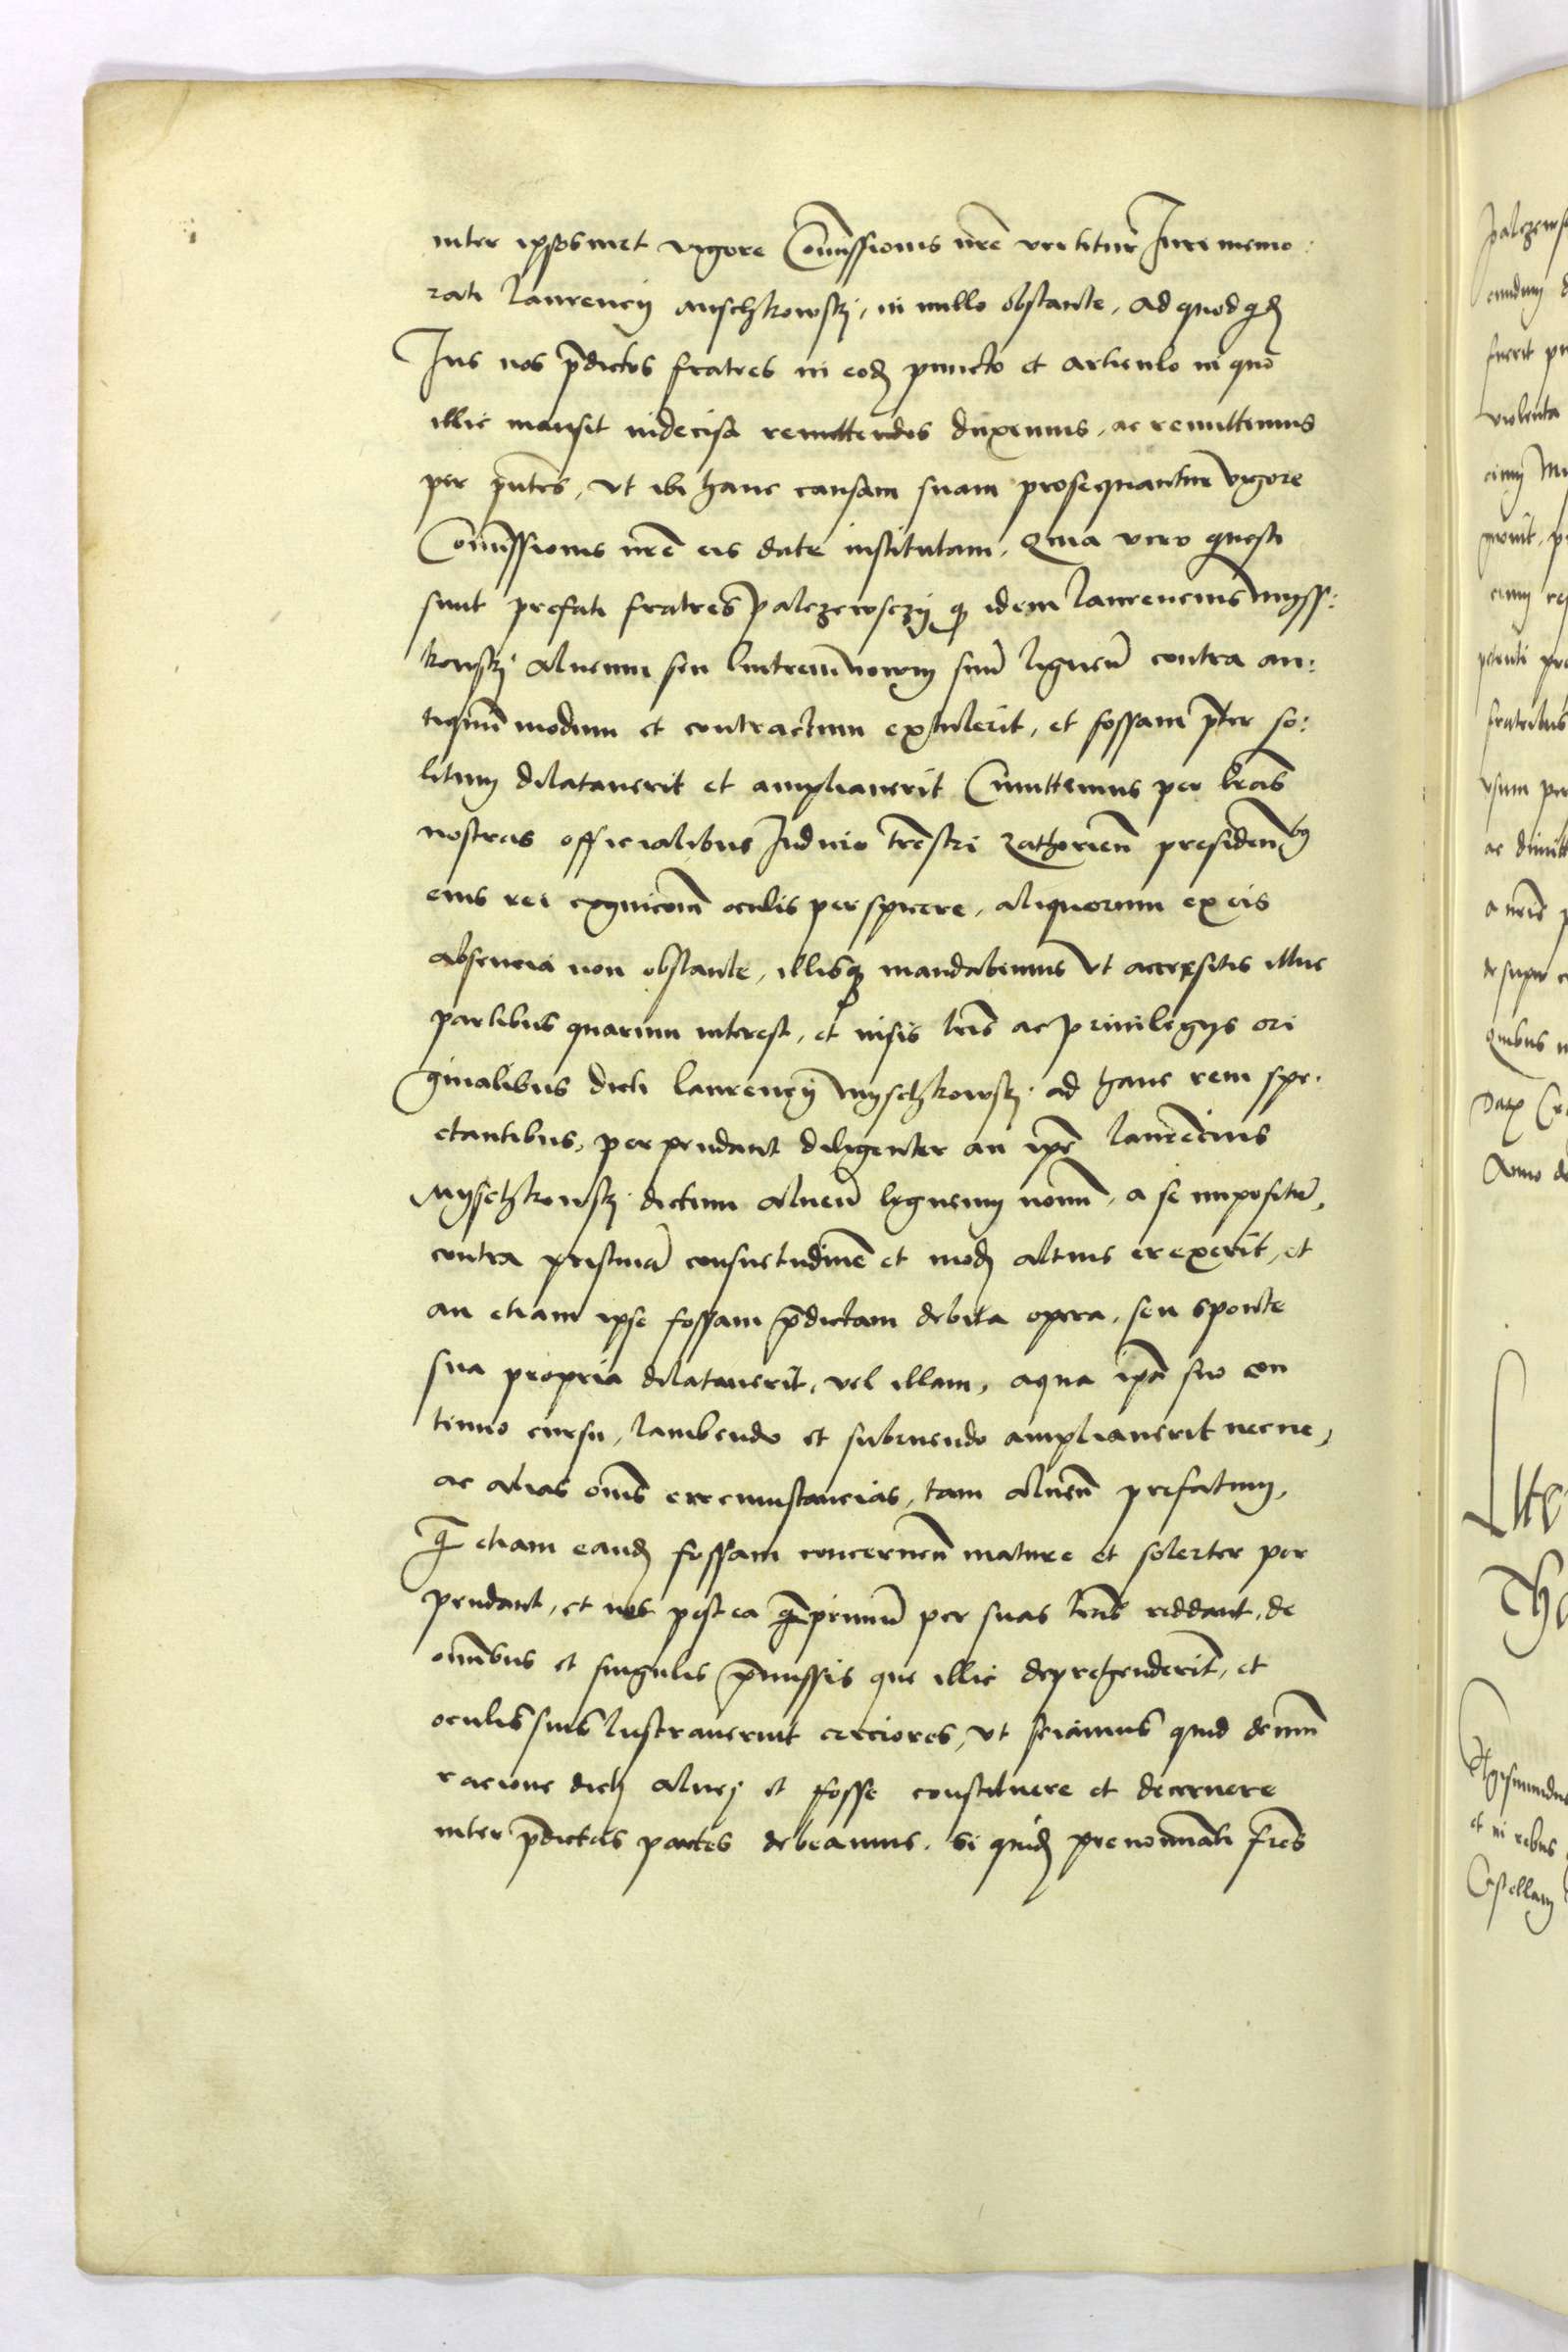 inter ipsosmet vigore Com̃issionis nr̃e vertitur Jure memo:
rati Laurencij Mischkowski, in nullo obstante, ad quod qd̃
Jus nos p̃dictos fratres in eod̃ puncto et articulo in quo
illic mansit indecisa remittendos duximus, ac remittimus
per p̃ntes, vt ibi hanc causam suam prosequantur vigore
Com̃issionis nr̃e eis date institutam. Quia vero questi
sunt prefati fratres Palczewsczij q̃ idem Laurencius Myss:
kowski alueum seu lintrem nowum suũ ligneũ contra an:
tiquũ modum et contractum extulerit, et fossam p̃ter so:
litum dilatauerit et ampliauerit Cõmittemus per l̃ras
nostras officialibus Judicio terr̃stri Zathorien̄ presiden̄bus
eius rei cognicom̃ oculis perspicere, aliquorum ex eis
absencia non obstante, illisq̃ mandabimus vt accersitis illuc
partibus quarum interest, et visis lr̃is ac priuilegijs ori
ginalibus dicti Laurencij Myschkowski ad hanc rem spe:
ctantibus, perpendant diligenter an ip̃e Laurẽcius
Myschkowski dictum alueũ ligneum nouũ, a se impositũ,
contra pristinã consuetudinẽ et mod̃ altius erexerit, et
an etiam ipse fossam p̃dictam debita opera, seu sponte
sua propria dilatauerit, vel illam, aqua ip̃a suo con
tinuo cursu, lambendo et subruendo ampliauerit necne,
ac alias om̃s circumstancias, tam alueũ prefatum,
q̃ etiam eand̃ fossam concernen̄ mature et solerter per
pendant, et nos postea q̃primũ per suas lr̃as reddant, de
om̃ibus et singulis p̃missis que illic deprehenderint, et
oculis suis lustrauerint cerciores, vt sciamus quid demũ
racione dicti aluej et fosse constituere et decernere
inter p̃dictas partes debeamus. Si quid̃ prenom̃inati fr̃es